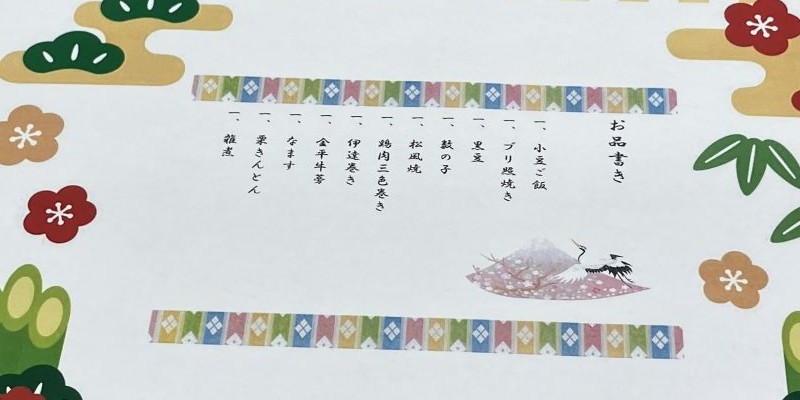 お品書き
一、小豆ご飯
一、ブリ照焼き
一、黒豆
一、数の子
一、松風焼
一、鶏肉三色巻き
一、伊達巻き
一、金平牛蒡
一、なます
一、栗きんとん
一、雑煮